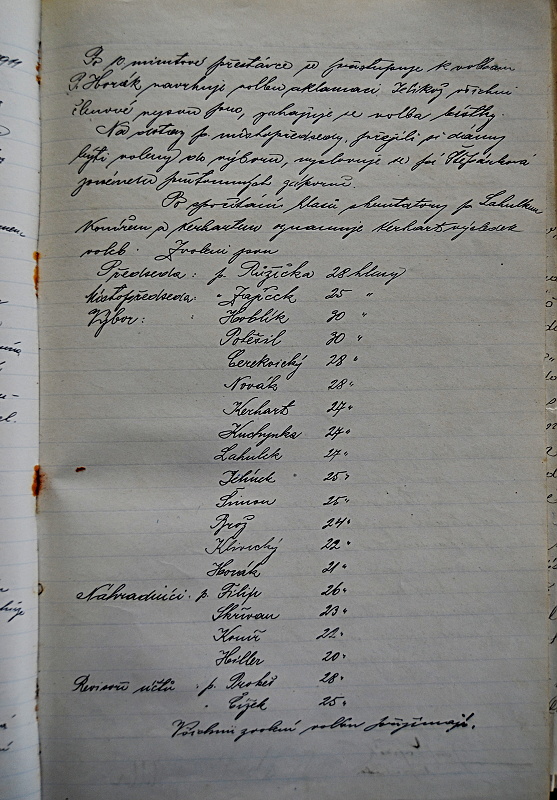 Po p. minutové přestávce se přistupuje k volbám
P. Horák navrhuje volbu aklamací. Jelikož všichni
členové nejsou pro, zahajuje se volba lístky.
Na dotaz p. místopředsedy, přejí-li si dámy
býti voleny do výboru, vyslovuje se pí Štěpánková
jménem přítomných záporně.
Po spočítání hlasů skrutátory pp. Lahulkem
Konířem a Kerhartem oznamuje Kerhart výsledek
voleb. Zvoleni jsou
Předseda: p. Růžička 28 hlasy
Místopředseda: " Zajíček 25 "
Výbor: " Hoblík 30 "
Potěšil 30 "
Cerekvický 28 "
Novák 28 "
Kerhart 27 "
Kuchynka 27 "
Lahulek 27 "
Jelínek 25 "
Šimon 25 "
Brož 24 "
Klivický 22 "
Horák 21 "
Náhradníci: p. Filip 26 "
Skřivan 23 "
Koníř 22 "
Hiller 20 "
Revisoři účtů: p. Brokeš 28 "
" Čížek 25 "
Všichni zvolení volbu přijímají.